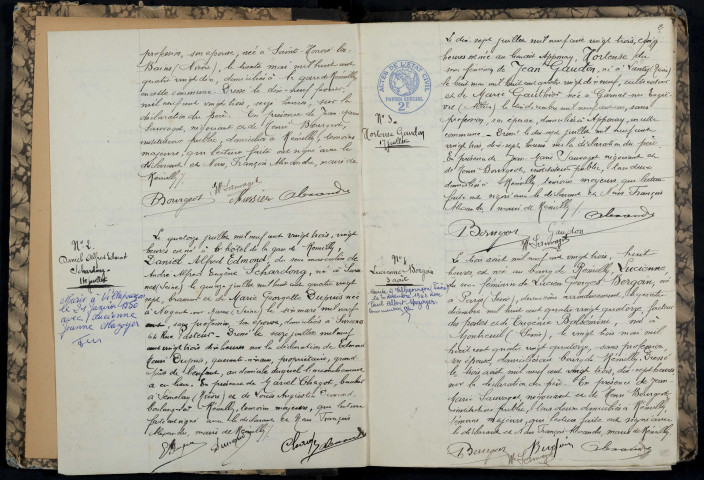 profession, son épouse, née à Saint-Honoré les
Bains (Nièvre), le trente mai mil huit cent
quatre vingt dix, domiciliés à la gare de Rémilly,
en cette commune. Dressé le dix-neuf
mil neuf cent vingt trois, seize heures, sur la
déclaration du père. En présence de Jean Marie
Sauvaget, négociant et de Henri Bourgeot,
instituteur public, domiciliés à Rémilly, témoins
majeurs, qui lecture faite ont signé avec le
déclarant et Nous, François Alexandre, maire de
Rémilly./
Bourgeot Sauvaget Alexandre
N° 2.
Daniel Alfred Edmond
Schardong
14 juillet
Marié à
le 21 janvier 1950
avec Lucienne
Jeanne
Le quatorze juillet mil neuf cent vingt trois, vingt
heures est né à l'hôtel de la gare de Rémilly,
Daniel Alfred Edmond, du sexe masculin de
André Alfred Eugène Schardong, né à Suresnes
(Seine), le quinze juillet mil huit cent quatre vingt
sept, et de Marie Georgette Dupuis née
à Nogent sur Marne (Seine) le six mars mil neuf
cent, sans profession, son épouse, domiciliés à Suresnes
rue Pasteur. Dressé le seize juillet mil neuf
cent vingt trois dix heures sur la déclaration de Edmond
Henri Dupuis, quarante ans, propriétaire, grand
père de l'enfant, au domicile duquel l'accouchement
a eu lieu. En présence de Marcel Charget, boucher
à Semelay (Nièvre) et de Louis Auguste
boulanger à Rémilly, témoins majeurs, qui lecture
faite ont signé avec le déclarant et Nous François
Alexandre, maire de Rémilly./
ACTES DE L'ÉTAT CIVIL
PAPIER SPÉCIAL
N° 3.
Hortense Gaudon
17 juillet
Le dix sept juillet mil neuf cent vingt trois, cinq
heures est née au hameau Apponay, Hortense du
sexe féminin de Jean Gaudon, né à
le huit mai mil huit cent quatre vingt dix neuf, cultivateur
et de Marie Gauthier née à Garnat sur Engièvre
(Allier) le dix décembre mil neuf cent, sans
profession, son épouse, domiciliés à Apponay, en cette
commune. Dressé le dix sept juillet mil neuf cent
vingt trois, dix sept heures sur la déclaration du père.
En présence de Jean Marie Sauvaget négociant et
de Henri Bourgeot, instituteur public, tous deux
domiciliés à Rémilly témoins majeurs qui lecture
faite ont signé avec le déclarant et Nous François
Alexandre maire de Rémilly./
Bourgeot Gaudon Alexandre
Sauvaget
N° 4
Lucienne Bergan
3 août
Le trois août mil neuf cent vingt trois, huit
heures, est née au bourg de Rémilly, Lucienne
du sexe féminin de Lucien Georges Bergan, né
à Paris (Seine), douzième arrondissement, le quatre
décembre mil huit cent quatre vingt quatorze, facteur
des postes et de
Montreuil (Seine) le vingt trois mai mil
huit cent quatre vingt quatorze, sans profession,
son épouse, domiciliés au bourg de Rémilly. Dressé
le trois août mil neuf cent vingt trois, dix sept heures
sur la déclaration du père. En présence de Jean
Marie Sauvaget, négociant et de Henri Bourgeot
instituteur public, tous deux domiciliés à Rémilly,
témoins majeurs, qui lecture faite ont signé avec
le déclarant et Nous François Alexandre, maire de Rémilly.
Bourgeot Bergan Alexandre
Sauvaget